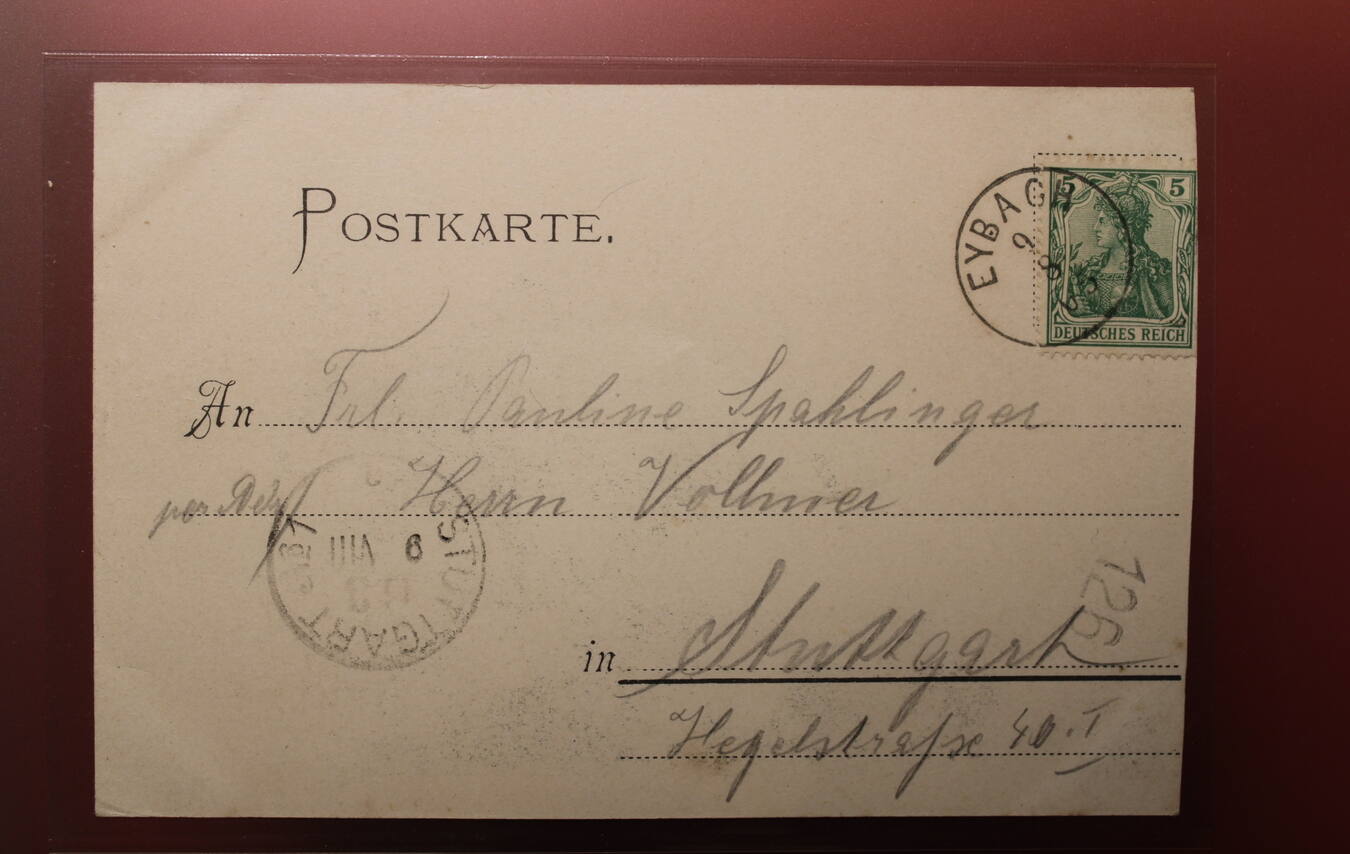 POSTKARTE.
EYBACH
9
8
5 5
DEUTSCHES REICH
An Frl. Pauline Spahlinger
per Adr. Herrn Vollmer
STUTTGART
6 VIII
in Stuttgart
126
Hegelstraße 40. I